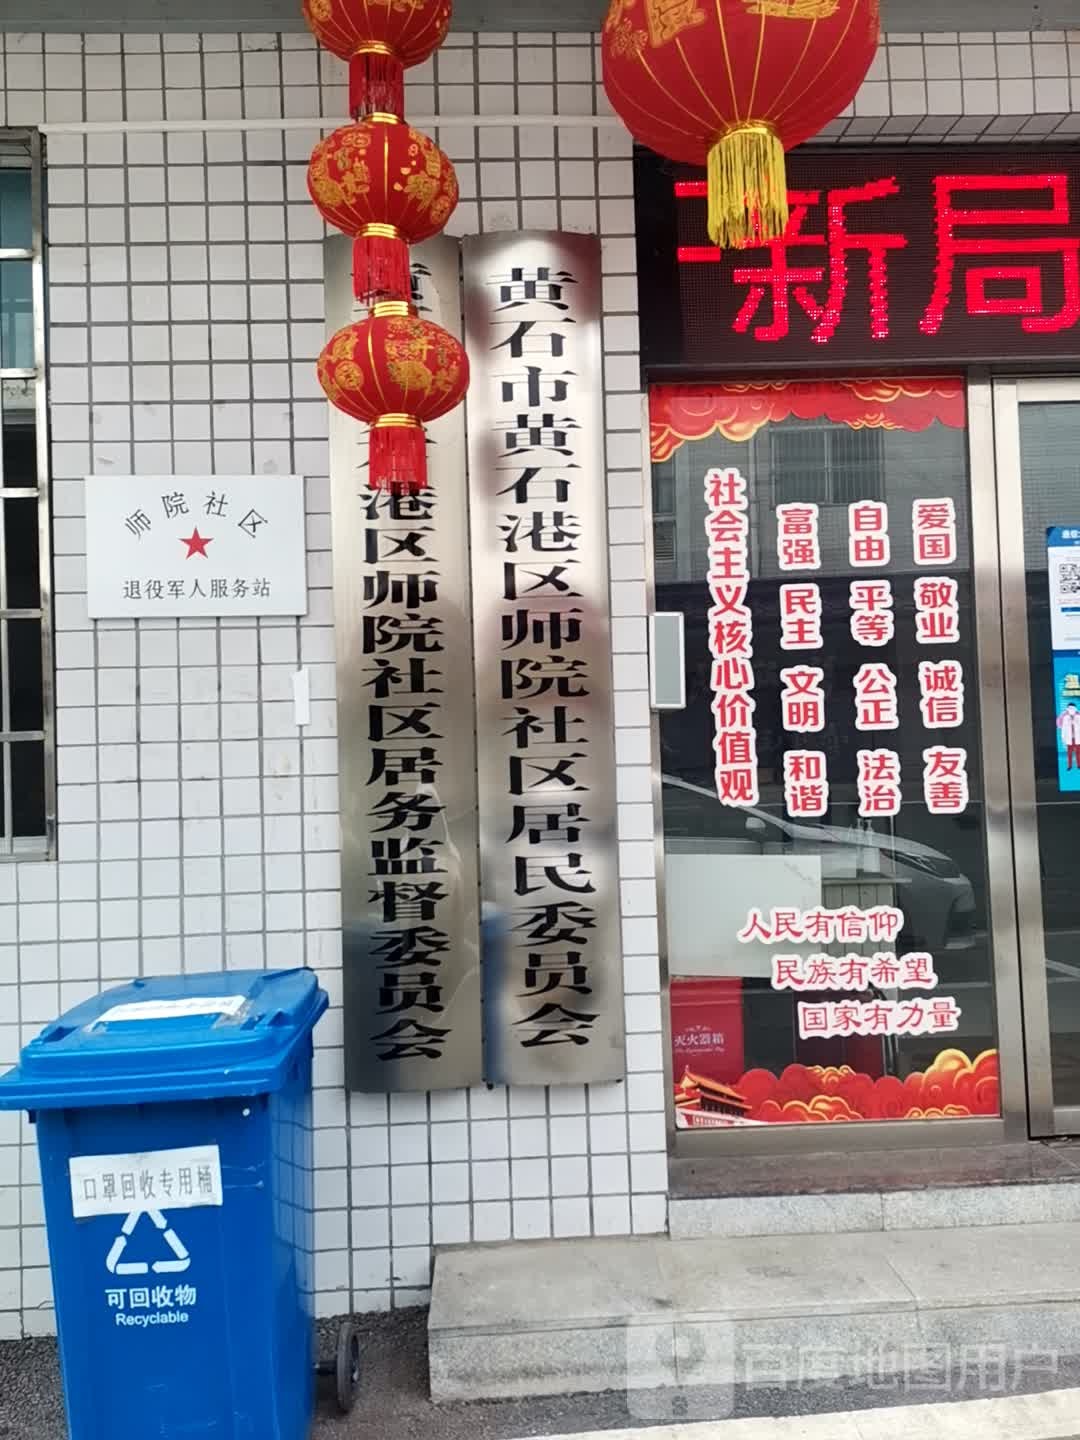 新局
黄石市黄石港区师院社区居民委员会
港区师院社区居务监督委员会
师院社区
退役军人服务站
社会主义核心价值观
富强 民主 文明 和谐
自由 平等 公正 法治
爱国 敬业 诚信 友善
人民有信仰
民族有希望
国家有力量
灭火器箱
口罩回收专用桶
可回收物
Recyclable
百度地图用户